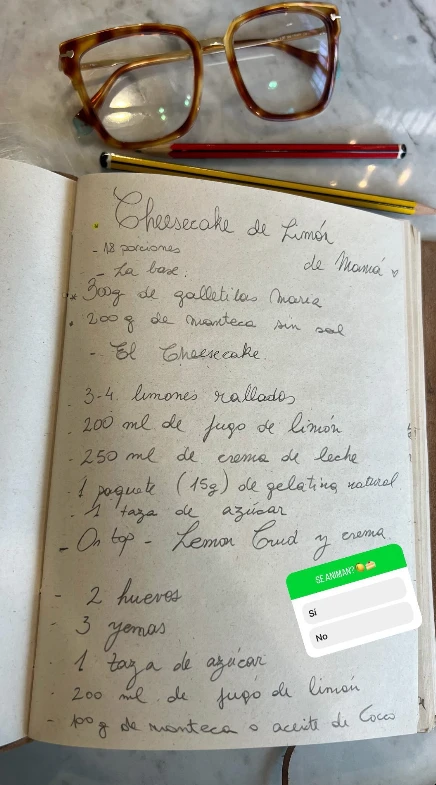 Cheesecake de Limón
de Mamá ♡
- 18 porciones
- La base:
* 300g de galletitas maria
• 200 g de manteca sin sal
- El Cheesecake.
- 3-4. limones rallados
- 200 ml de jugo de limón
- 250 ml de crema de leche
- 1 paquete (15g) de gelatina natural
- 1 taza de azúcar
- On top - Lemon Crud y crema.
- 2 huevos
- 3 yemas
- 1 taza de azúcar
- 200 ml de jugo de limón
- 100 g de manteca o aceite de Coco
SE ANIMAN?
Sí
No